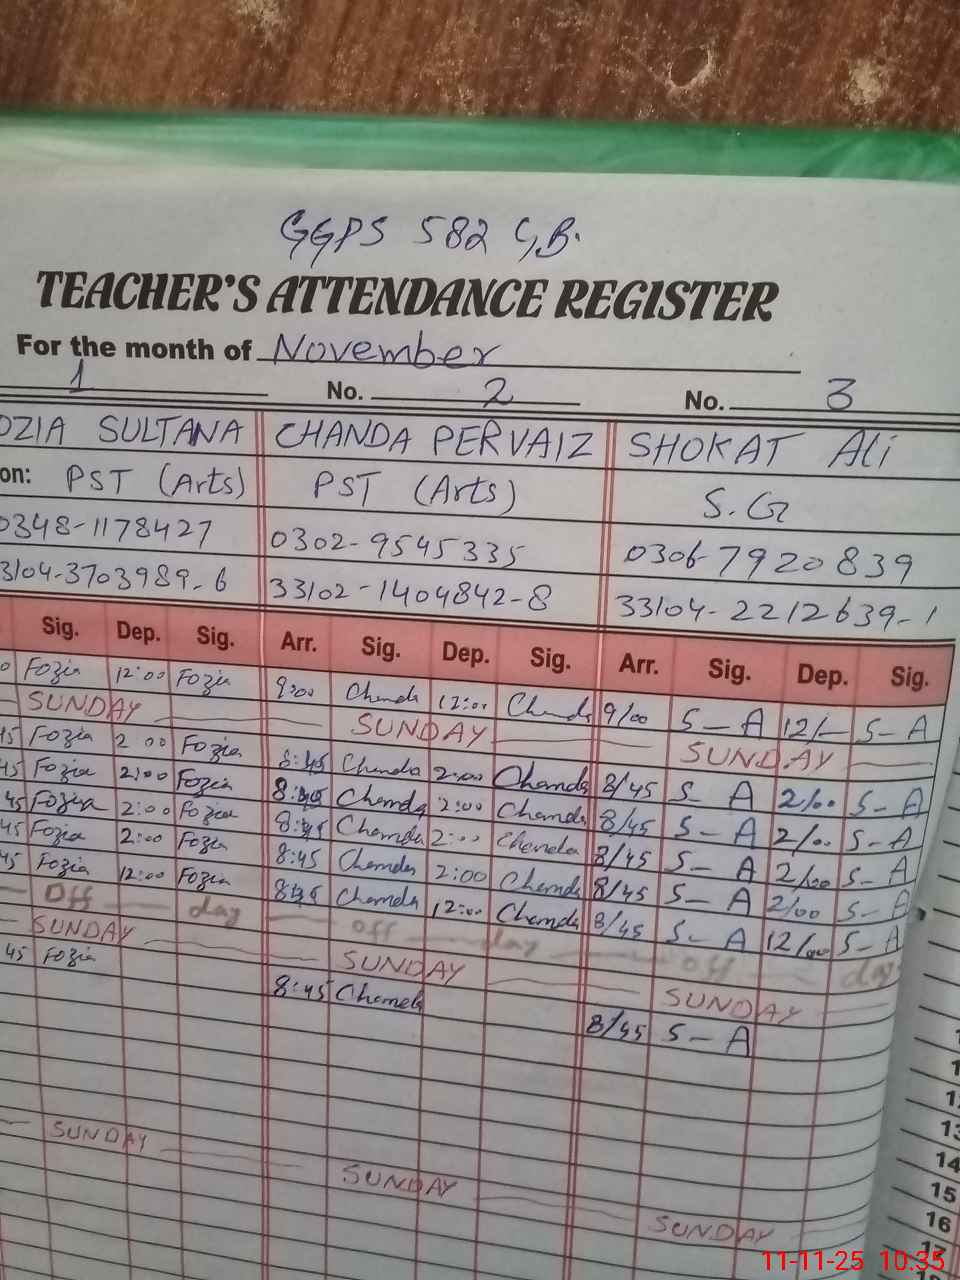 GGPS 582 G.B.
TEACHER'S ATTENDANCE REGISTER
For the month of November
1 No. 2 No. 3
OZIA SULTANA CHANDA PERVAIZ SHOKAT Ali
on: PST (Arts) PST (Arts) S.G
0348-1178427 0302-9545335 0306-7920839
3104-3703989-6 33102-1404842-8 33104-2212639-1
Sig. Dep. Sig. Arr. Sig. Dep. Sig. Arr. Sig. Dep. Sig.
0 Fozia 12:00 Fozia 9:00 Chanda 12:00 Chanda 9/00 S-A 12/- S-A
SUNDAY SUNDAY SUNDAY
45 Fozia 2:00 Fozia 8:45 Chanda 2:00 Chanda 8/45 S-A 2/00 S-A
45 Fozia 2:00 Fozia 8:45 Chanda 2:00 Chanda 8/45 S-A 2/00 S-A
45 Fozia 2:00 Fozia 8:45 Chanda 2:00 Chanda 8/45 S-A 2/00 S-A
45 Fozia 2:00 Fozia 8:45 Chanda 2:00 Chanda 8/45 S-A 2/00 S-A
45 Fozia 12:00 Fozia 8:45 Chanda 12:00 Chanda 8/45 S-A 12/00 S-A
Off day off day off day
SUNDAY SUNDAY SUNDAY
45 Fozia 8:45 Chanda 8/45 S-A
SUNDAY SUNDAY SUNDAY
13
14
15
16
17
11-11-25 10:35